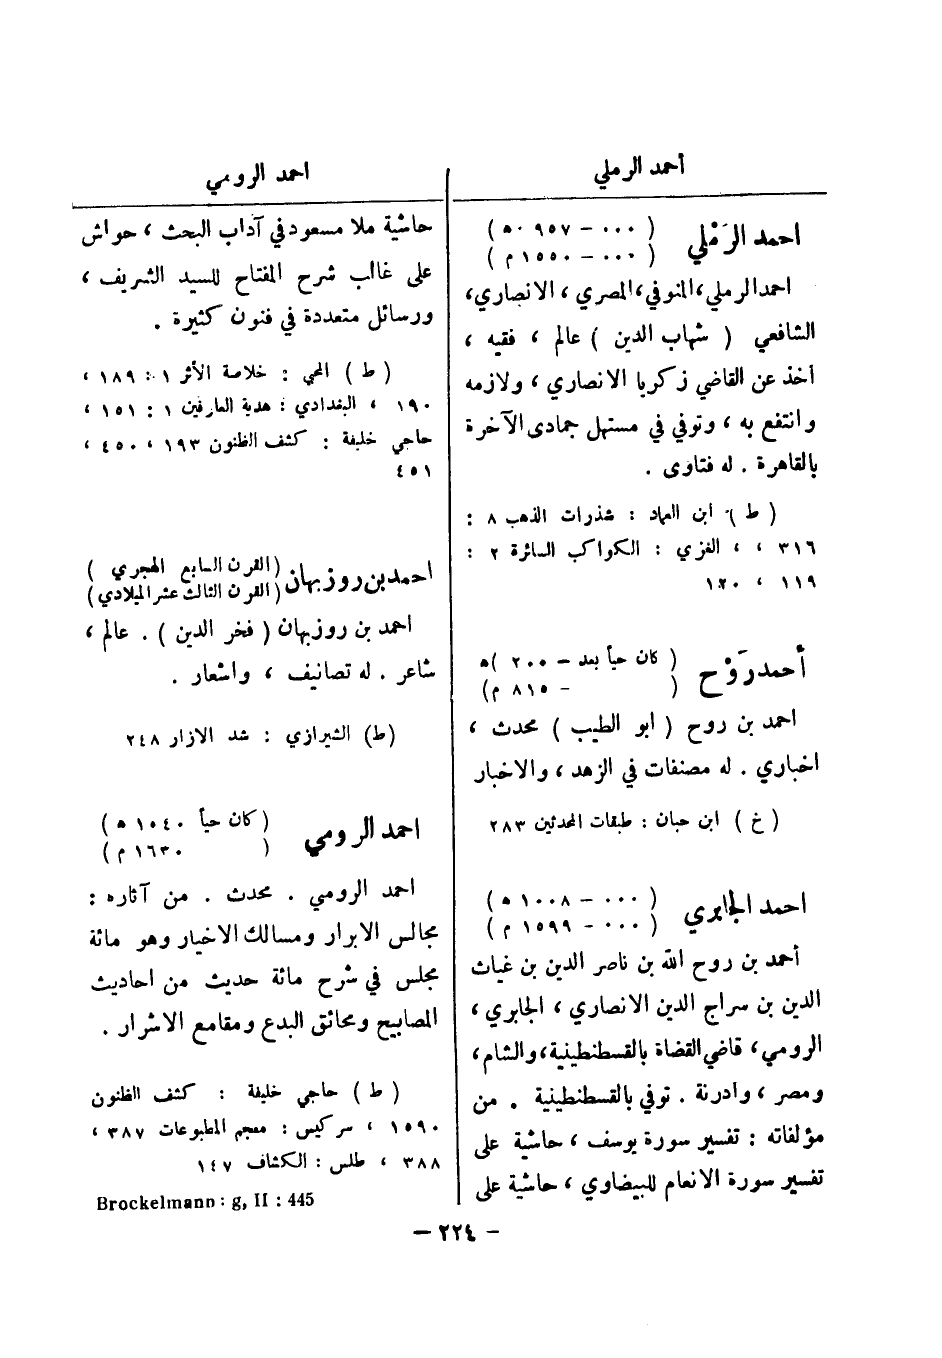 أحمد الرملي
احمد الرملي
( ٠٠٠ - ٩٥٧ هـ )
( ٠٠٠ - ١٥٥٠ م )
احمد الرملي، المنوفي، المصري ، الانصاري،
الشافعي ( شهاب الدين ) عالم ، فقيه ،
أخذ عن القاضي زكريا الانصاري ، ولازمه
وانتفع به ، وتوفي في مستهل جمادى الآخرة
بالقاهرة . له فتاوى .
( ط ) ابن العماد : شذرات الذهب ٨ :
٣١٦ ، ، الغزي : الكواكب السائرة ٢ :
١١٩ ، ١٢٠
أحمد رَوْح
( كان حياً بعد - ٢٠٠ )هـ
( - ٨١٥ م)
احمد بن روح ( ابو الطيب ) محدث ،
اخباري . له مصنفات في الزهد ، والاخبار
( خ ) ابن حبان : طبقات المحدثين ٢٨٣
احمد الجابري
( ٠٠٠ - ١٠٠٨ هـ )
( ٠٠٠ - ١٥٩٩ م )
أحمد بن روح الله بن ناصر الدين بن غياث
الدين بن سراج الدين الانصاري ، الجابري ،
الرومي ، قاضي القضاة بالقسطنطينية، والشام،
ومصر ، وادرنة . توفي بالقسطنطينية . من
مؤلفاته : تفسير سورة يوسف ، حاشية على
تفسير سورة الانعام للبيضاوي ، حاشية على
احمد الرومي
حاشية ملا مسعود في آداب البحث ، حواش
على غالب شرح المفتاح للسيد الشريف ،
ورسائل متعددة في فنون كثيرة .
( ط ) المحبي : خلاصة الأثر ١ : ١٨٩ ،
١٩٠ ، البغدادي : هدية العارفين ١ : ١٥١ ،
حاجي خليفة : كشف الظنون ١٩٣ ، ٤٥٠ ،
٤٥١
احمد بن روزبهان
( القرن السابع الهجري )
( القرن الثالث عشر الميلادي)
احمد بن روزبهان ( فخر الدين ) . عالم ،
شاعر . له تصانيف ، واشعار .
(ط) الشيرازي : شد الازار ٢٤٨
احمد الرومي
( كان حياً ١٠٤٠ هـ )
( ١٦٣٠ م )
احمد الرومي . محدث . من آثاره :
مجالس الابرار ومسالك الاخيار وهو مائة
مجلس في شرح مائة حديث من احاديث
المصابيح ومحائق البدع ومقامع الاشرار .
( ط ) حاجي خليفة : كشف الظنون
١٥٩٠ ، سركيس : معجم المطبوعات ٣٨٧ ،
٣٨٨ ، طلس : الكشاف ١٤٧
Brockelmann : g, II : 445
- ٢٢٤ -